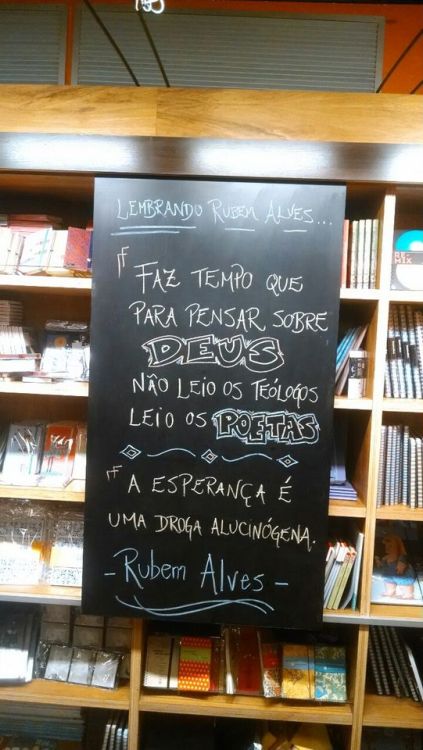 LEMBRANDO RUBEM ALVES...
"FAZ TEMPO QUE
PARA PENSAR SOBRE
DEUS
NÃO LEIO OS TEÓLOGOS
LEIO OS POETAS
"A ESPERANÇA É
UMA DROGA ALUCINÓGENA.
- Rubem Alves -
RE-
MIX